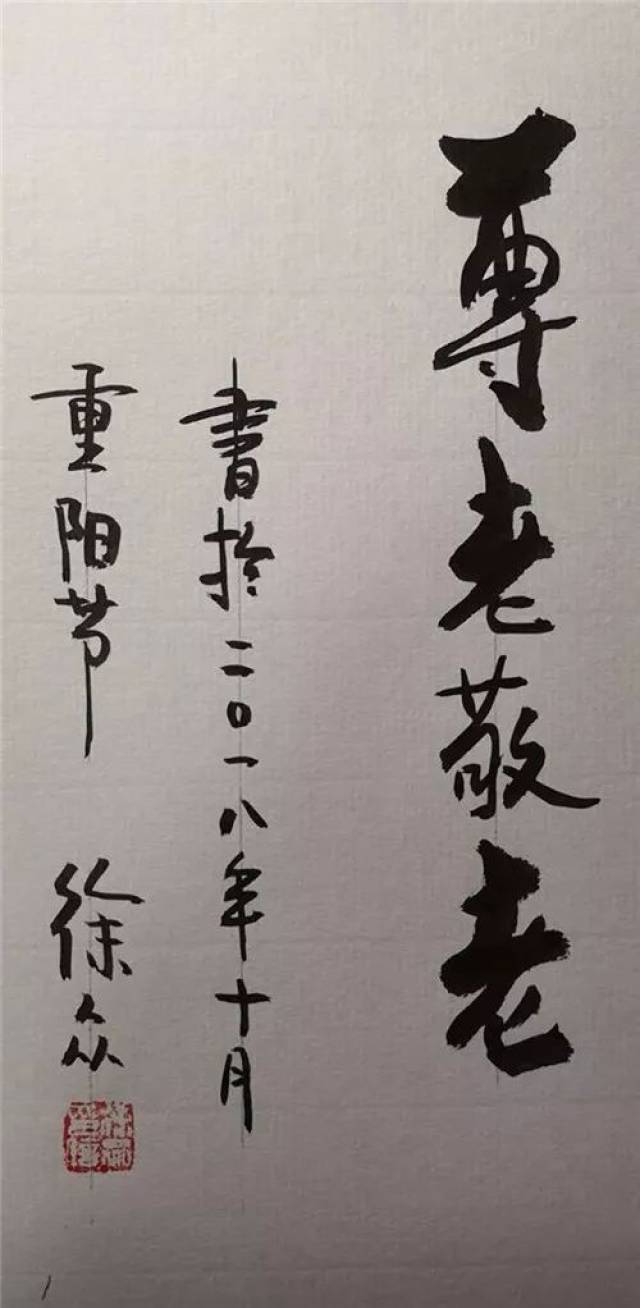 尊老敬老
書於二〇一八年十月
重阳节 徐众